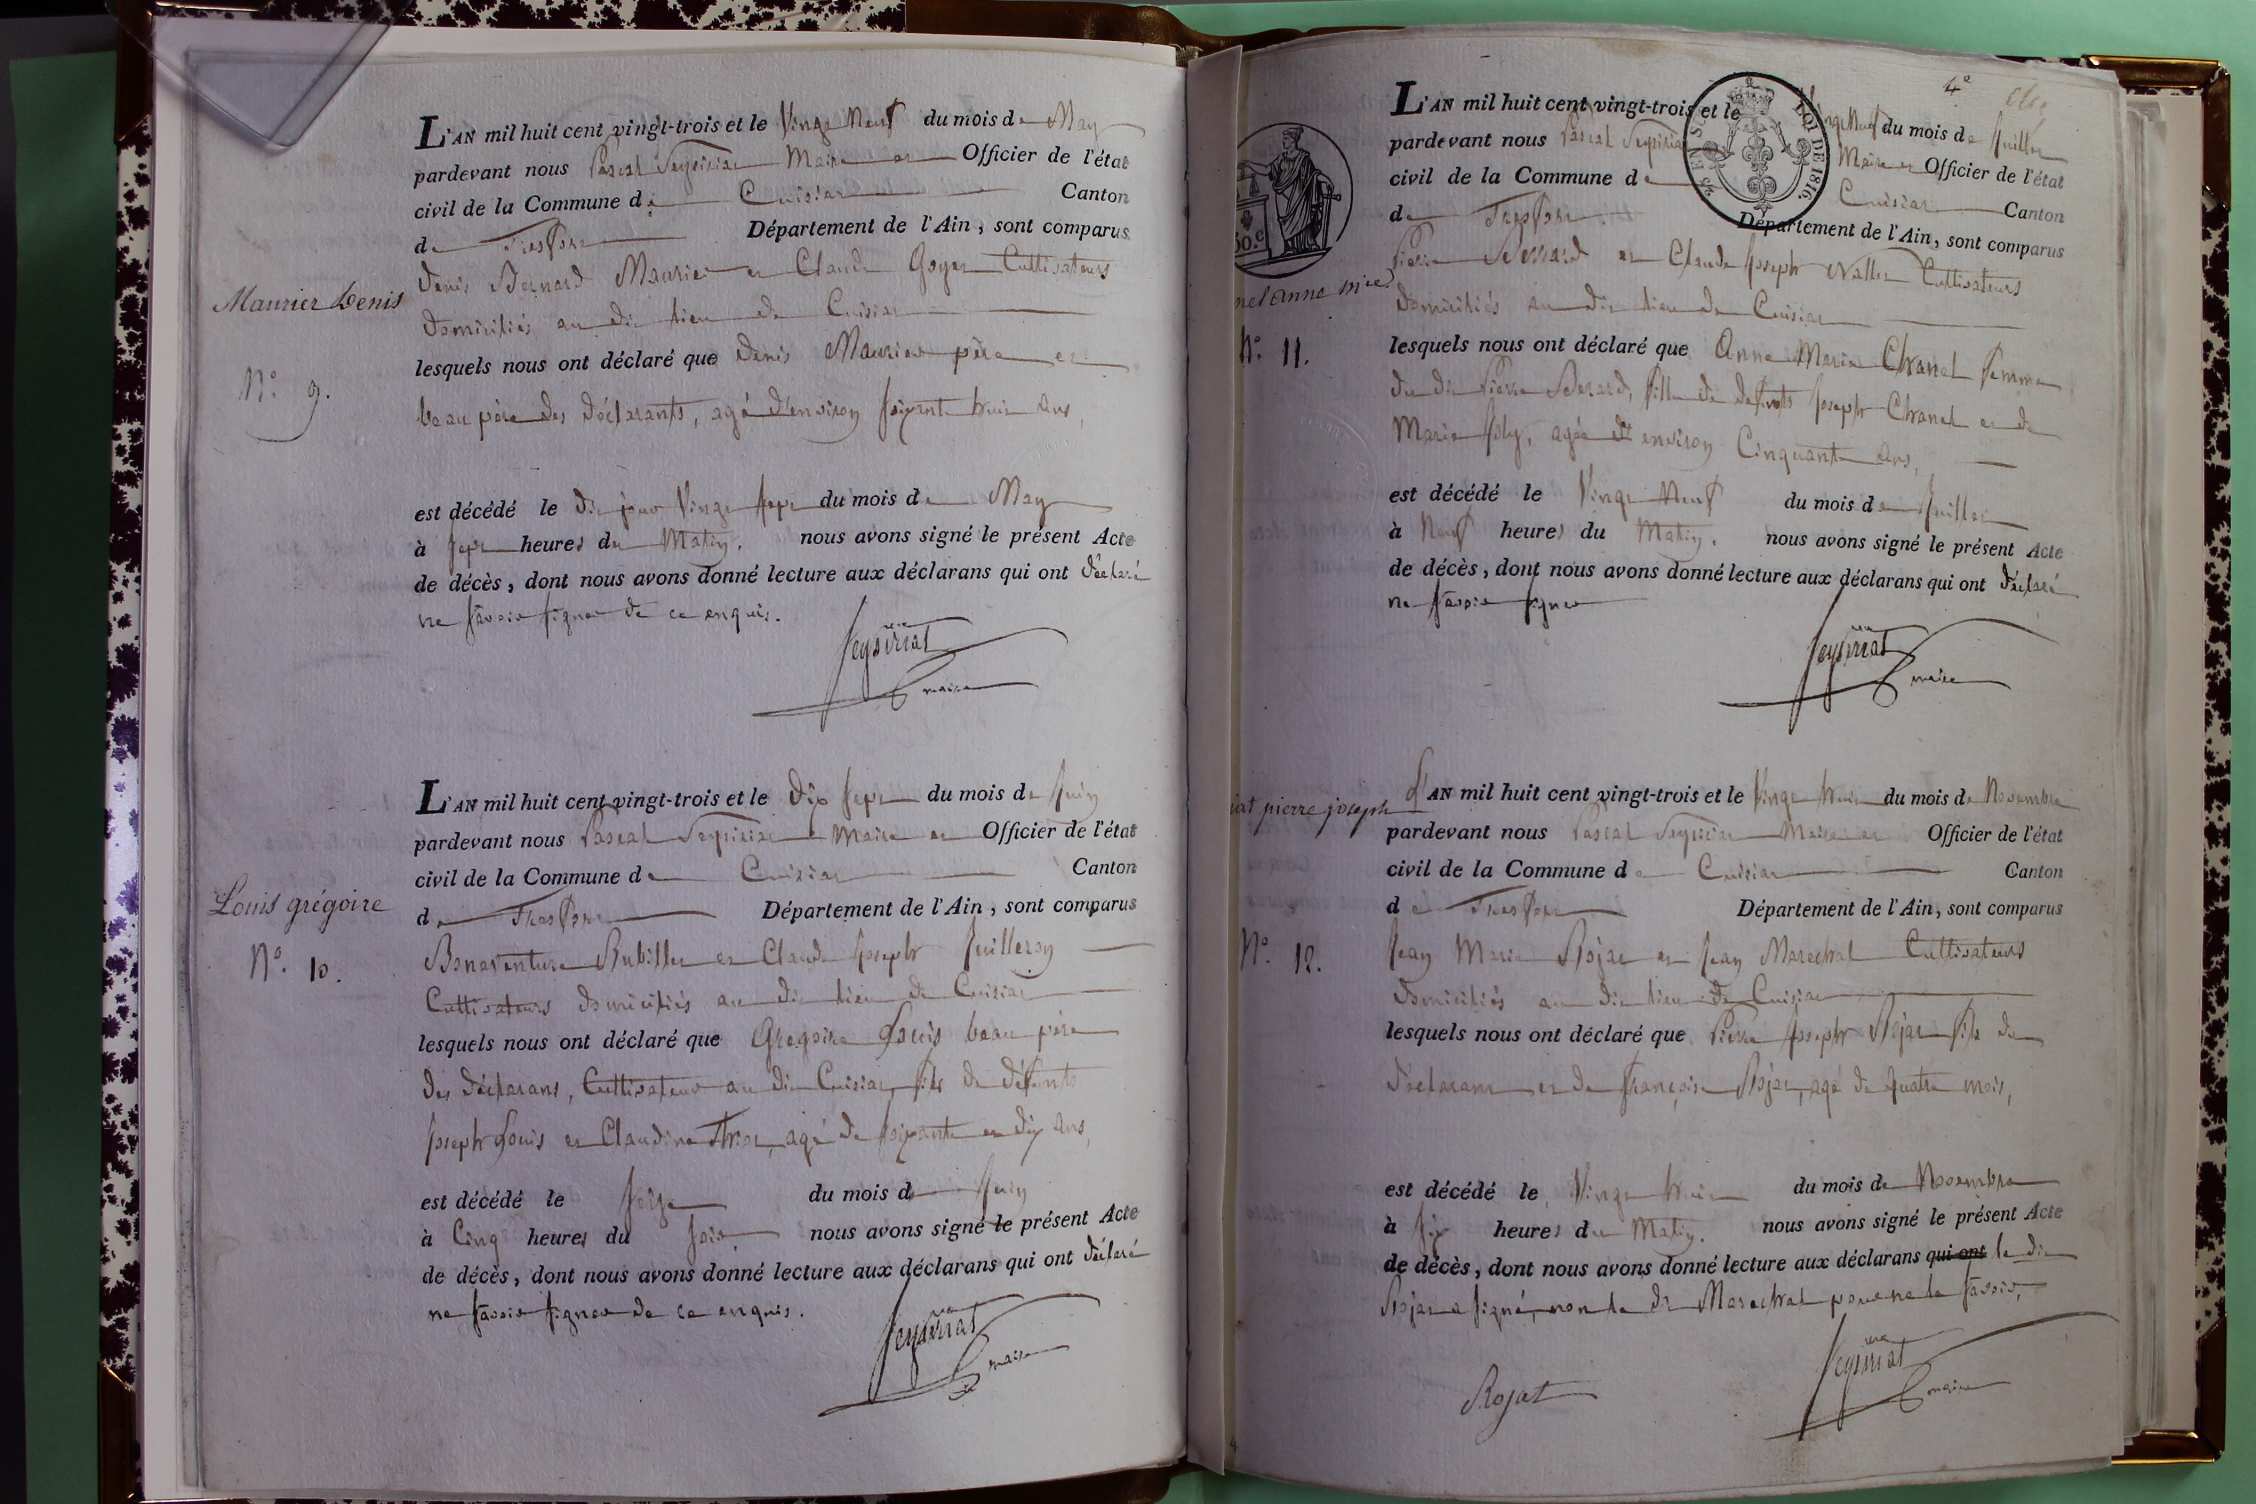 L'AN mil huit cent vingt-trois et le Vingt Neuf du mois de May
pardevant nous Pascal Seysiriat Maire et Officier de l'état
civil de la Commune de Cuisiat Canton
de Treffort Département de l'Ain, sont comparus
Denis Bernard Maurier et Claude Goyet Cultivateurs
Maurier Denis
domiciliés au dit lieu de Cuisiat
lesquels nous ont déclaré que Denis Maurier père et
N.° 9.
beau père des déclarants, agé d'environ soixante huit ans,
est décédé le dit jour Vingt sept du mois de May
à sept heures du Matin. nous avons signé le présent Acte
de décès, dont nous avons donné lecture aux déclarans qui ont déclaré
ne savoir signer de ce enquis.
Seysiriat
maire
L'AN mil huit cent vingt-trois et le dix sept du mois de Juin
pardevant nous Pascal Seysiriat Maire et Officier de l'état
civil de la Commune de Cuisiat Canton
Louis grégoire
de Treffort Département de l'Ain, sont comparus
Bonaventure Rubillet et Claude Joseph Juilleron
N.° 10.
Cultivateurs domiciliés au dit lieu de Cuisiat
lesquels nous ont déclaré que Gregoire Louis beau père
des déclarans, Cultivateur au dit Cuisiat, fils de défunts
Joseph Louis et Claudine agé de soixante et dix ans,
est décédé le seize du mois de Juin
à Cinq heures du soir nous avons signé le présent Acte
de décès, dont nous avons donné lecture aux déclarans qui ont déclaré
ne savoir signer de ce enquis.
Seysiriat
maire
4e
L'AN mil huit cent vingt-trois et le Vingt Neuf du mois de Juillet
LOI DE 1816.
pardevant nous Pascal Seysiriat Maire et Officier de l'état
civil de la Commune de Cuisiat Canton
de Treffort Département de l'Ain, sont comparus
50.c
Pierre Berrard et Claude Joseph Nallet Cultivateurs
nel anne mie
domiciliés au dit lieu de Cuisiat
N.° 11.
lesquels nous ont déclaré que Anne Marie Chanel femme
du dit Pierre Berard, fille de defunts Joseph Chanel et de
Marie Joly, agée d'environ Cinquante ans,
est décédé le Vingt Neuf du mois de Juillet
à Neuf heures du Matin. nous avons signé le présent Acte
de décès, dont nous avons donné lecture aux déclarans qui ont déclaré
ne savoir signer
Seysiriat
maire
L'AN mil huit cent vingt-trois et le Vingt huit du mois de Novembre
jat pierre joseph
pardevant nous Pascal Seysiriat Maire et Officier de l'état
civil de la Commune de Cuisiat Canton
de Treffort Département de l'Ain, sont comparus
N.° 12.
Jean Marie Rojat et Jean Marechal Cultivateurs
domiciliés au dit lieu de Cuisiat
lesquels nous ont déclaré que Pierre Joseph Rojat fils du
déclarant et de Françoise Rojat, agé de quatre mois,
est décédé le Vingt huit du mois de Novembre
à six heures du Matin. nous avons signé le présent Acte
de décès, dont nous avons donné lecture aux déclarans qui ont le dit
Rojat a signé, non le dt Marechal pour ne le savoir,
Rojat
Seysiriat
maire